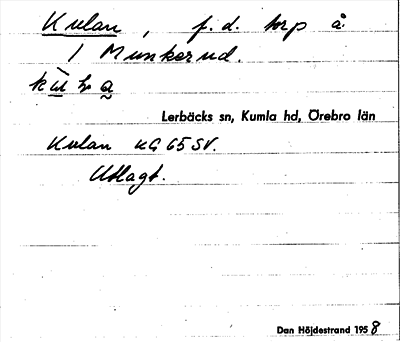 Kulan, f.d. torp å
1 Munkerud.
Lerbäcks sn, Kumla hd, Örebro län
Kulan KG 65 SV.
Utlagt.
Dan Höjdestrand 1958